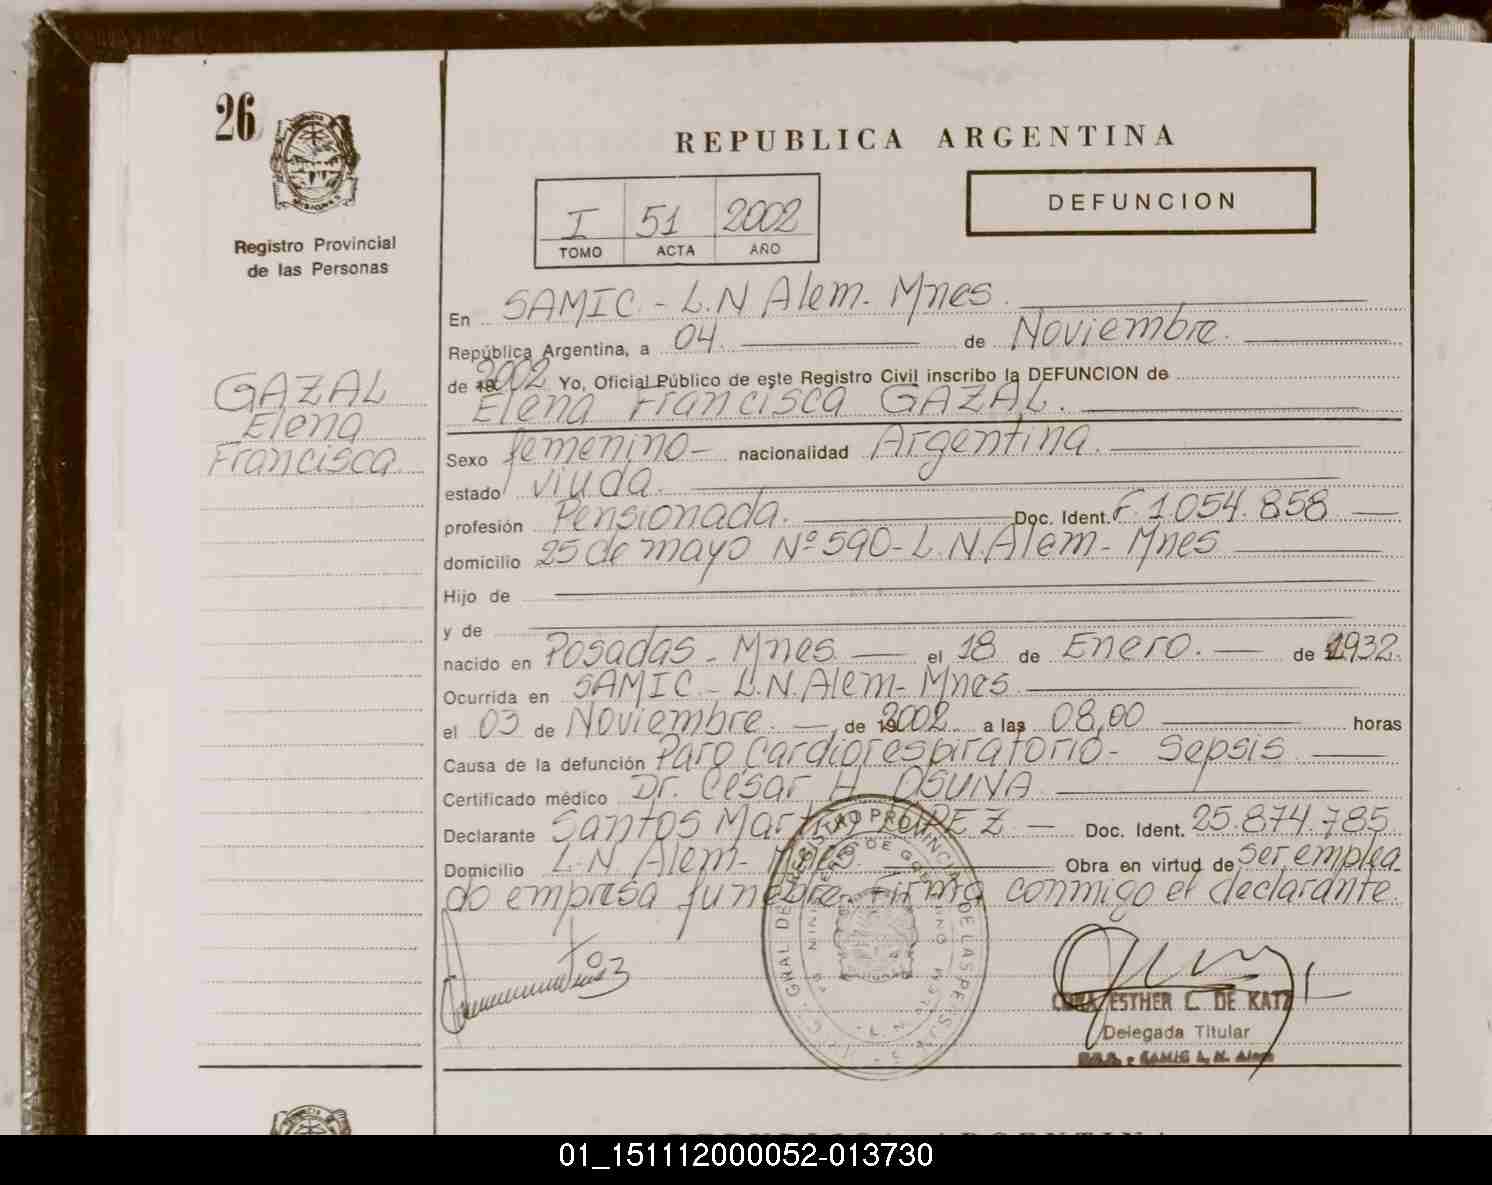 26
Registro Provincial
de las Personas
GAZAL
Elena
Francisca
REPUBLICA ARGENTINA
I 51 2002
TOMO ACTA AÑO
DEFUNCION
En SAMIC - L.N Alem - Mnes.
República Argentina, a 04 de Noviembre.
de 2002 Yo, Oficial Público de este Registro Civil inscribo la DEFUNCION de
Elena Francisca GAZAL.
Sexo femenino - nacionalidad Argentina.
estado viuda.
profesión Pensionada. Doc. Ident. F 1.054.858
domicilio 25 de mayo Nº 590 - L.N. Alem - Mnes
Hijo de
y de
nacido en Posadas - Mnes el 18 de Enero. de 1932.
Ocurrida en SAMIC - L.N. Alem - Mnes
el 03 de Noviembre. de 2002 a las 08,00 horas
Causa de la defunción Paro Cardiorespiratorio - Sepsis
Certificado médico Dr. Cesar H. OSUNA
Declarante Santos Martin LOPEZ - Doc. Ident. 25.874.785
Domicilio L.N. Alem - Mnes. Obra en virtud de ser emplea
do empresa funebre. Firma conmigo el declarante.
CORA ESTHER C. DE KATZ
Delegada Titular
SAMIC L. N. Alem
REPUBLICA ARGENTINA
01_151112000052-013730